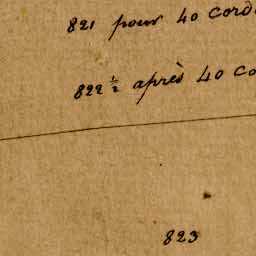 821 pour 40 cord
822 ½ après 40 co
823